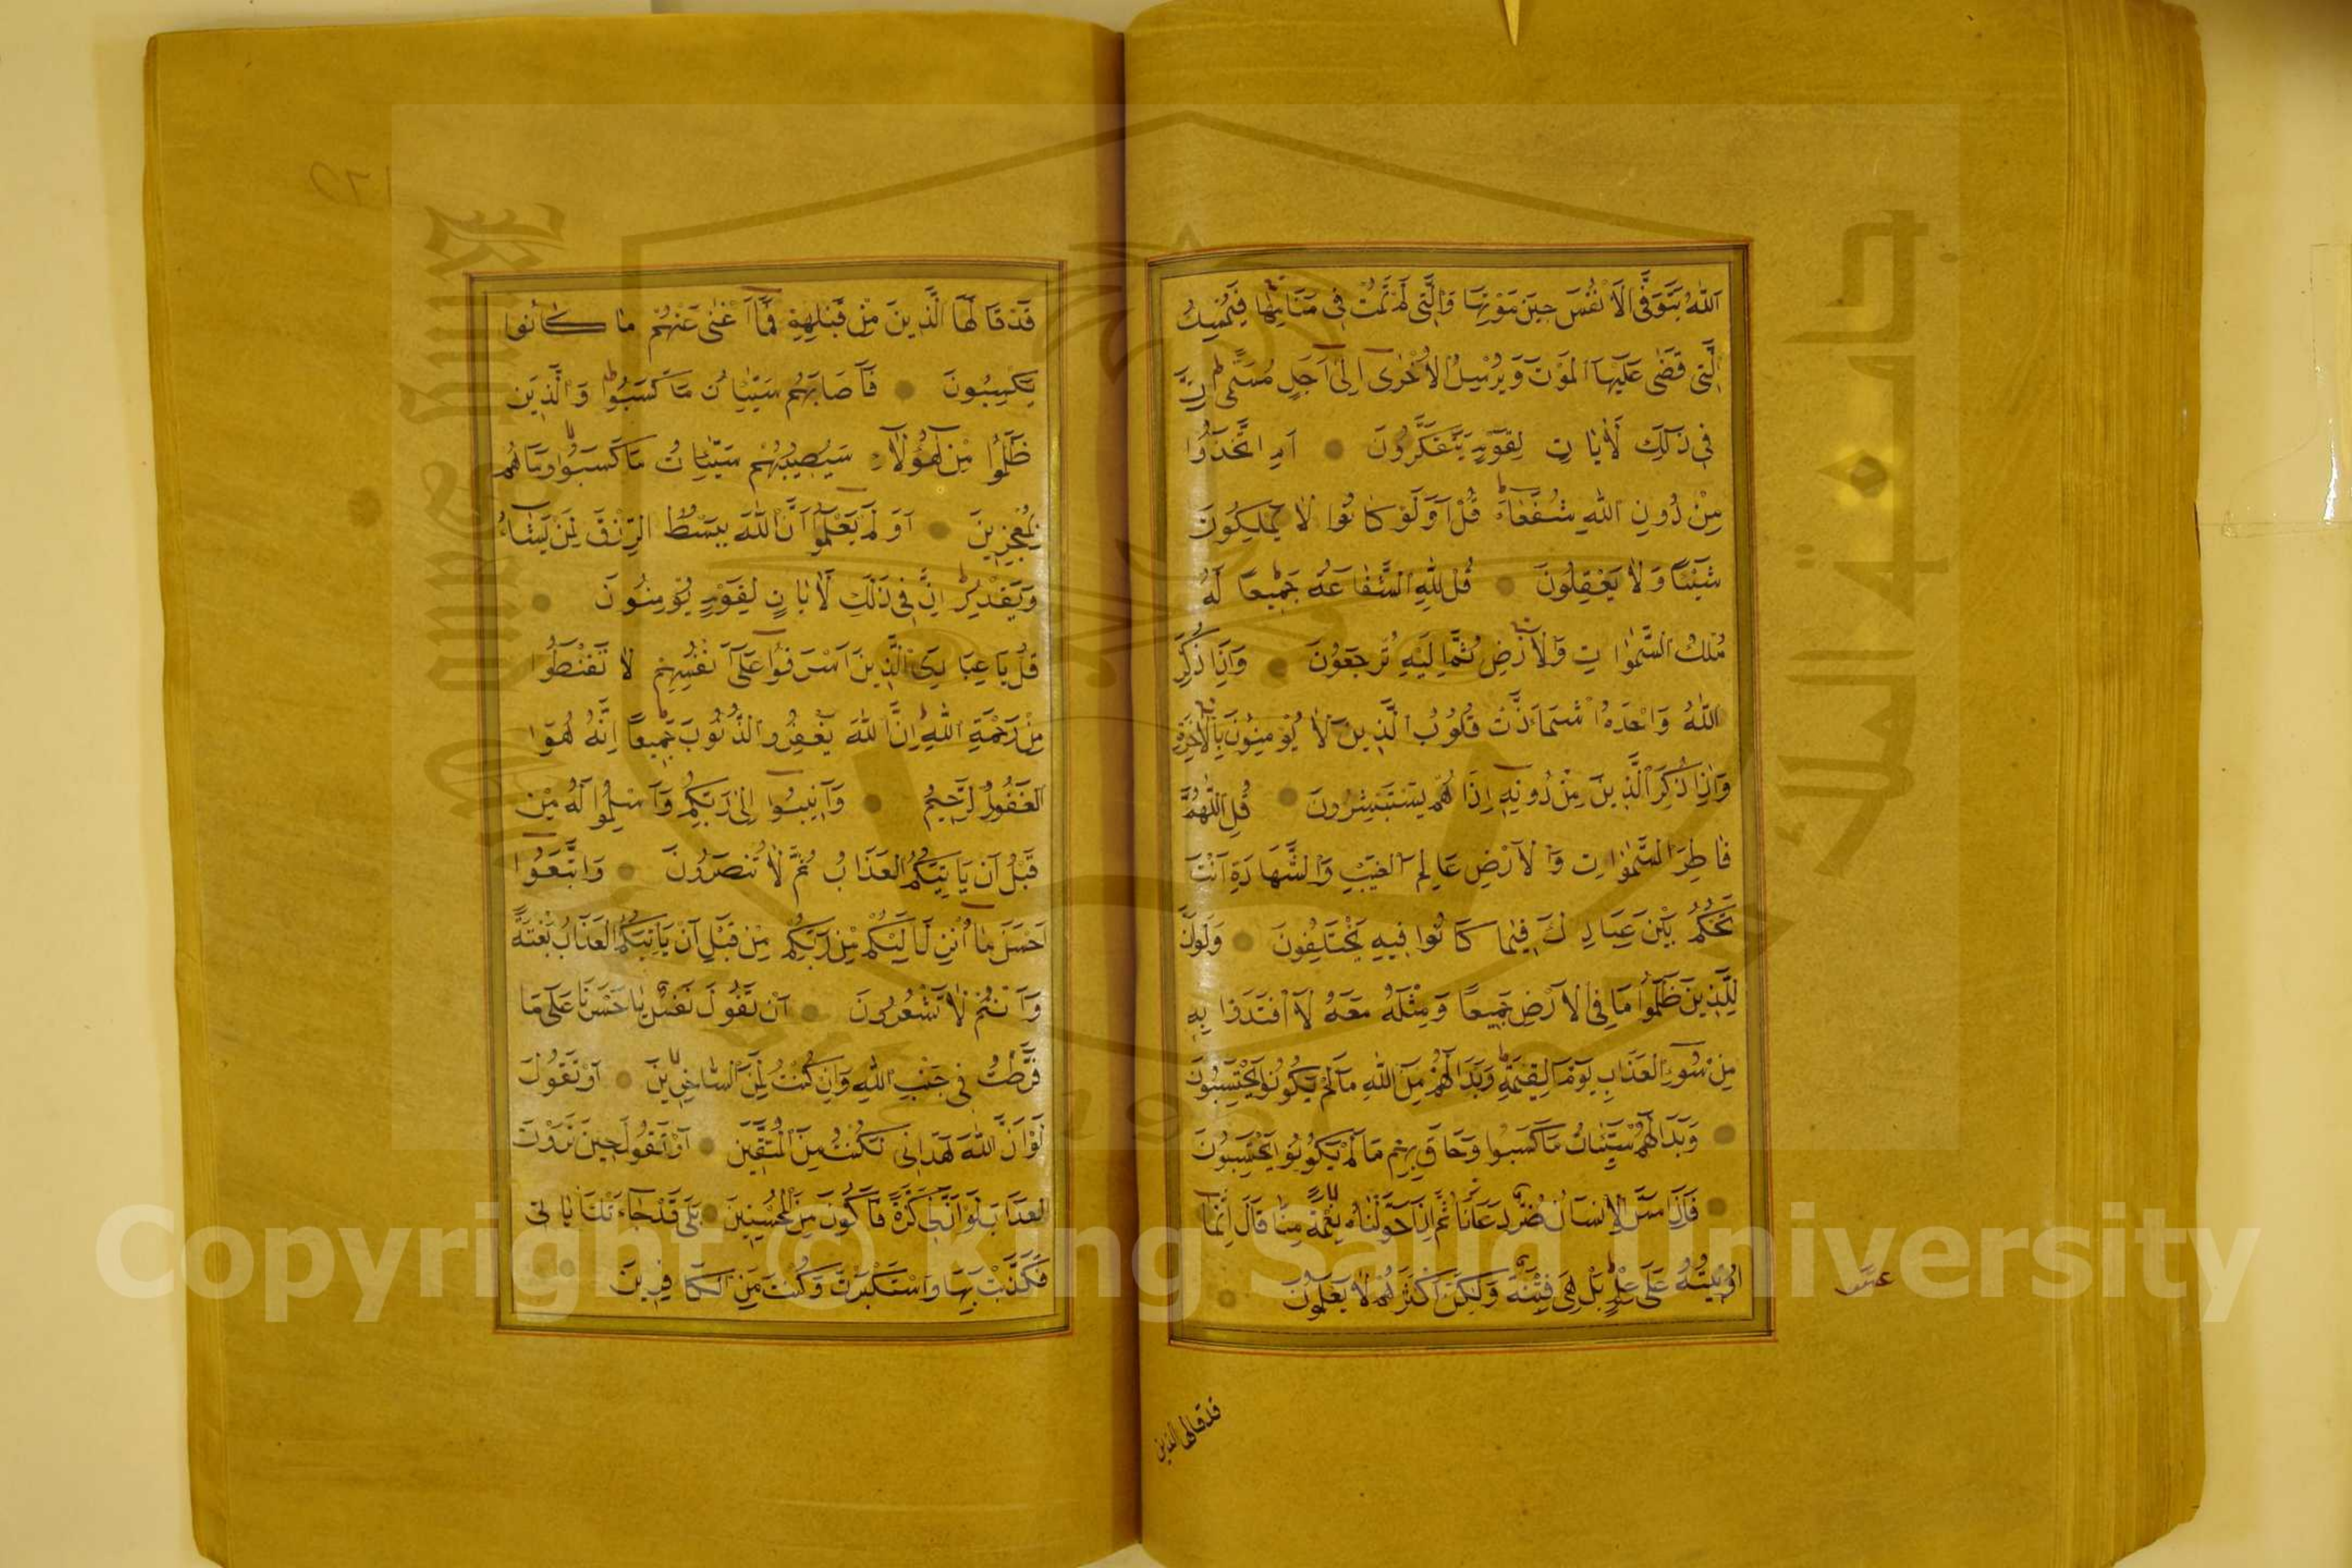 اَللّٰهُ يَتَوَفَّى الْاَنْفُسَ حِينَ مَوْتِهَا وَالَّتِى لَمْ تَمُتْ فِى مَنَامِهَا فَيُمْسِكُ
الَّتِى قَضٰى عَلَيْهَا الْمَوْتَ وَيُرْسِلُ الْاُخْرٰى اِلٰى اَجَلٍ مُسَمًّى اِنَّ
فِى ذٰلِكَ لَاٰيَاتٍ لِقَوْمٍ يَتَفَكَّرُونَ اَمِ اتَّخَذُوا
مِنْ دُونِ اللّٰهِ شُفَعَاءَ قُلْ اَوَلَوْ كَانُوا لَا يَمْلِكُونَ
شَيْئًا وَلَا يَعْقِلُونَ قُلْ لِلّٰهِ الشَّفَاعَةُ جَمِيعًا لَهُ
مُلْكُ السَّمٰوَاتِ وَالْاَرْضِ ثُمَّ اِلَيْهِ تُرْجَعُونَ وَاِذَا ذُكِرَ
اللّٰهُ وَحْدَهُ اشْمَاَزَّتْ قُلُوبُ الَّذِينَ لَا يُؤْمِنُونَ بِالْاٰخِرَةِ
وَاِذَا ذُكِرَ الَّذِينَ مِنْ دُونِهِ اِذَا هُمْ يَسْتَبْشِرُونَ قُلِ اللّٰهُمَّ
فَاطِرَ السَّمٰوَاتِ وَالْاَرْضِ عَالِمَ الْغَيْبِ وَالشَّهَادَةِ اَنْتَ
تَحْكُمُ بَيْنَ عِبَادِكَ فِيمَا كَانُوا فِيهِ يَخْتَلِفُونَ وَلَوْ اَنَّ
لِلَّذِينَ ظَلَمُوا مَا فِى الْاَرْضِ جَمِيعًا وَمِثْلَهُ مَعَهُ لَافْتَدَوْا بِهِ
مِنْ سُوءِ الْعَذَابِ يَوْمَ الْقِيٰمَةِ وَبَدَا لَهُمْ مِنَ اللّٰهِ مَا لَمْ يَكُونُوا يَحْتَسِبُونَ
وَبَدَا لَهُمْ سَيِّئَاتُ مَا كَسَبُوا وَحَاقَ بِهِمْ مَا
فَاِذَا مَسَّ الْاِنْسَانَ ضُرٌّ دَعَانَا ثُمَّ اِذَا خَوَّلْنَاهُ نِعْمَةً مِنَّا قَالَ اِنَّمَا
اُوتِيتُهُ عَلٰى عِلْمٍ بَلْ هِىَ فِتْنَةٌ وَلٰكِنَّ اَكْثَرَهُمْ لَا يَعْلَمُونَ
عشر
قد قالها الذين
قَدْ قَالَهَا الَّذِينَ مِنْ قَبْلِهِمْ فَمَا اَغْنٰى عَنْهُمْ مَا كَانُوا
يَكْسِبُونَ فَاَصَابَهُمْ سَيِّئَاتُ مَا كَسَبُوا وَالَّذِينَ
ظَلَمُوا مِنْ هٰؤُلَاءِ سَيُصِيبُهُمْ سَيِّئَاتُ مَا كَسَبُوا وَمَا هُمْ
بِمُعْجِزِينَ اَوَلَمْ يَعْلَمُوا اَنَّ اللّٰهَ يَبْسُطُ الرِّزْقَ لِمَنْ يَشَاءُ
وَيَقْدِرُ اِنَّ فِى ذٰلِكَ لَاٰيَاتٍ لِقَوْمٍ يُؤْمِنُونَ
قُلْ يَا عِبَادِىَ الَّذِينَ اَسْرَفُوا عَلٰى اَنْفُسِهِمْ لَا تَقْنَطُوا
مِنْ رَحْمَةِ اللّٰهِ اِنَّ اللّٰهَ يَغْفِرُ الذُّنُوبَ جَمِيعًا اِنَّهُ هُوَ
الْغَفُورُ الرَّحِيمُ وَاَنِيبُوا اِلٰى رَبِّكُمْ وَاَسْلِمُوا لَهُ مِنْ
قَبْلِ اَنْ يَاْتِيَكُمُ الْعَذَابُ ثُمَّ لَا تُنْصَرُونَ وَاتَّبِعُوا
اَحْسَنَ مَا اُنْزِلَ اِلَيْكُمْ مِنْ رَبِّكُمْ مِنْ قَبْلِ اَنْ يَاْتِيَكُمُ الْعَذَابُ بَغْتَةً
وَاَنْتُمْ لَا تَشْعُرُونَ اَنْ تَقُولَ نَفْسٌ يَا حَسْرَتَا عَلٰى مَا
فَرَّطْتُ فِى جَنْبِ اللّٰهِ وَاِنْ كُنْتُ لَمِنَ السَّاخِرِينَ اَوْ تَقُولَ
لَوْ اَنَّ اللّٰهَ هَدَانِى لَكُنْتُ مِنَ الْمُتَّقِينَ اَوْ تَقُولَ حِينَ تَرَى
الْعَذَابَ لَوْ اَنَّ لِى كَرَّةً فَاَكُونَ مِنَ الْمُحْسِنِينَ بَلٰى قَدْ جَاءَتْكَ اٰيَاتِى
فَكَذَّبْتَ بِهَا وَاسْتَكْبَرْتَ وَكُنْتَ مِنَ الْكَافِرِينَ
Copyright © King Saud University